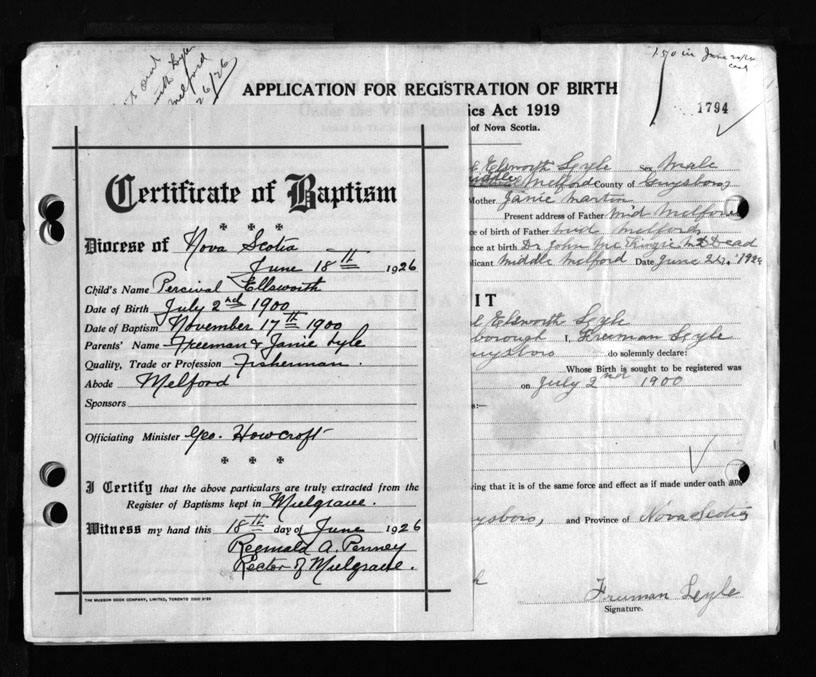 & Lyle
Melford
26/26
1.50 in June 24/26
cash
APPLICATION FOR REGISTRATION OF BIRTH
ics Act 1919
of Nova Scotia.
1794
Certificate of Baptism
Diocese of Nova Scotia
June 18th 1926
Child's Name Percival Ellsworth
Date of Birth July 2nd 1900
Date of Baptism November 17th 1900
Parents' Name Freeman & Janie Lyle
Quality, Trade or Profession Fisherman.
Abode Melford
Sponsors
Officiating Minister Geo. Howcroft
I Certify that the above particulars are truly extracted from the
Register of Baptisms kept in Mulgrave.
Witness my hand this 18th day of June 1926
Reginald A. Penney
Rector of Mulgrave.
THE MUSSON BOOK COMPANY, LIMITED, TORONTO
l Elsworth Lyle sex Male
Middle Melford County of Guysboro
Mother Janie Martin
Present address of Father Mid Melford
ce of birth of Father Mid Melford
nce at birth Dr John McKinzie MD Dead
licant Middle Melford Date June 22, 192
IT
l Elsworth Lyle
borough I, Fruman Lyle
uysboro do solemnly declare:
Whose Birth is sought to be registered was
on July 2nd 1900
s:—
ving that it is of the same force and effect as if made under oath and
uysboro, and Province of Nova Scotia
Fruman Lyle
Signature.